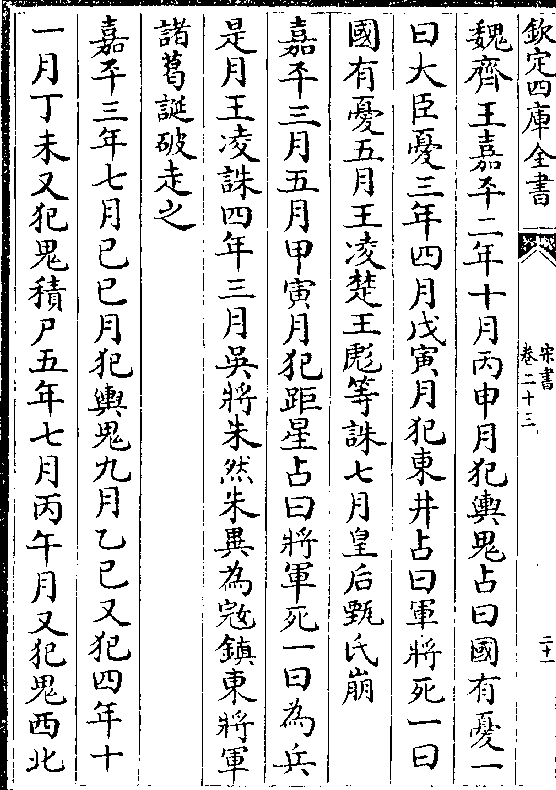 欽定四庫全書
宋書
卷二十三
二十一
魏齊王嘉平二年十月丙申月犯輿鬼占曰國有憂一
曰大臣憂三年四月戊寅月犯東井占曰軍將死一曰
國有憂五月王凌楚王彪等誅七月皇后甄氏崩
嘉平三月五月甲寅月犯距星占曰將軍死一曰為兵
是月王凌誅四年三月吳將朱然朱異為寇鎮東將軍
諸葛誕破走之
嘉平三年七月己巳月犯輿鬼九月乙巳又犯四年十
一月丁未又犯鬼積尸五年七月丙午月又犯鬼西北